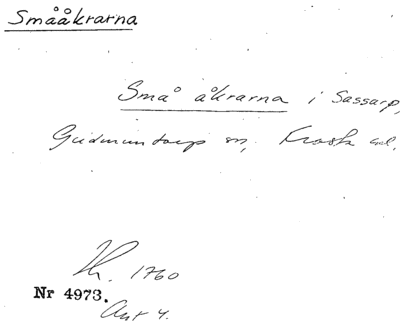 Småäkrarna
Små åkrarna i Sassarp,
Gudmuntorps sn, Frosta hd.
Kr. 1760
Nr 4973.
Akt 4.